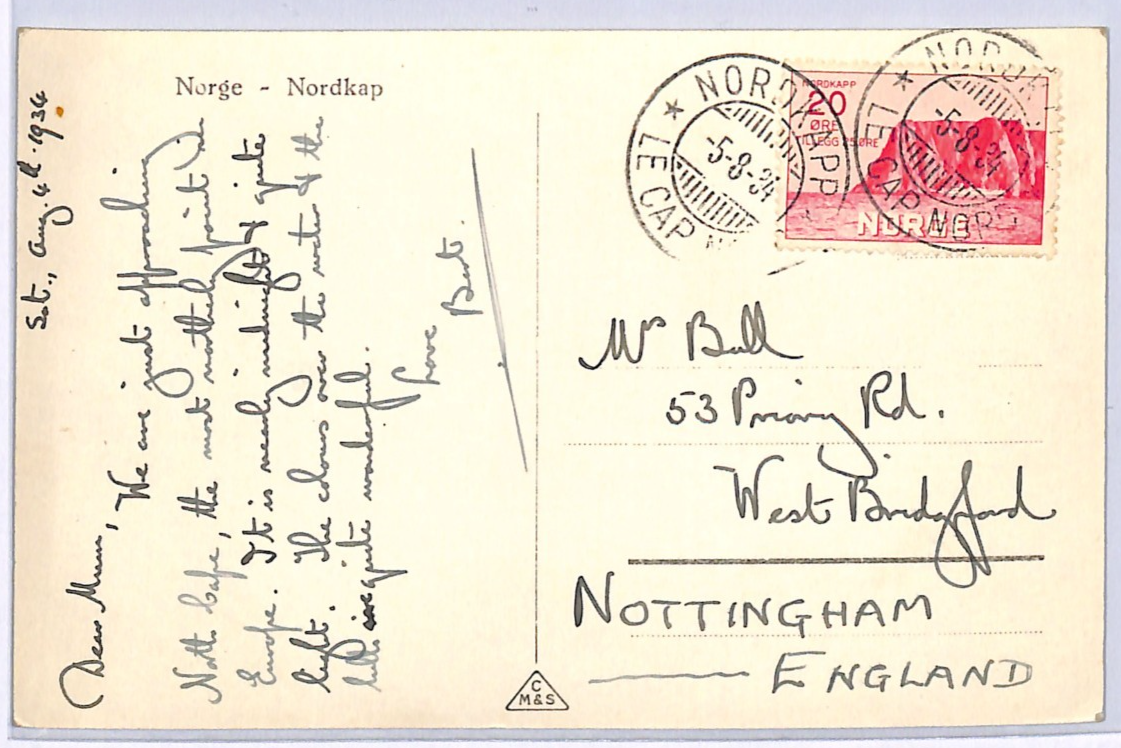 Norge - Nordkap
Sat., Aug. 4th. 1934
Dear Mum,
We are just approaching
North Cape, the most northerly point in
Europe. It is nearly midnight & quite
light. The colours over the water & the
hills is quite wonderful.
Love
Bert.
NORDKAPP
LE CAP NORD
-5-8-34
NORDKAPP
20
ØRE
TILLEGG 25 ØRE
NORGE
NORDKAPP
LE CAP NORD
-5-8-34
Mr Bull
53 Priory Rd.
West Bridgford
NOTTINGHAM
ENGLAND
C
M&S